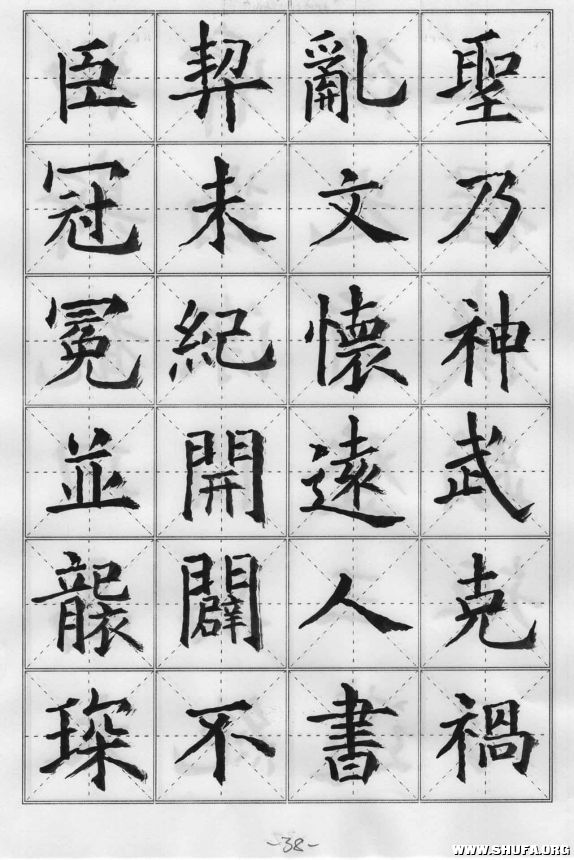 聖乃神武克禍
亂文懷遠人書
契未紀開闢不
臣冠冕並襲琛
-38-
WWW.SHUFA.ORG